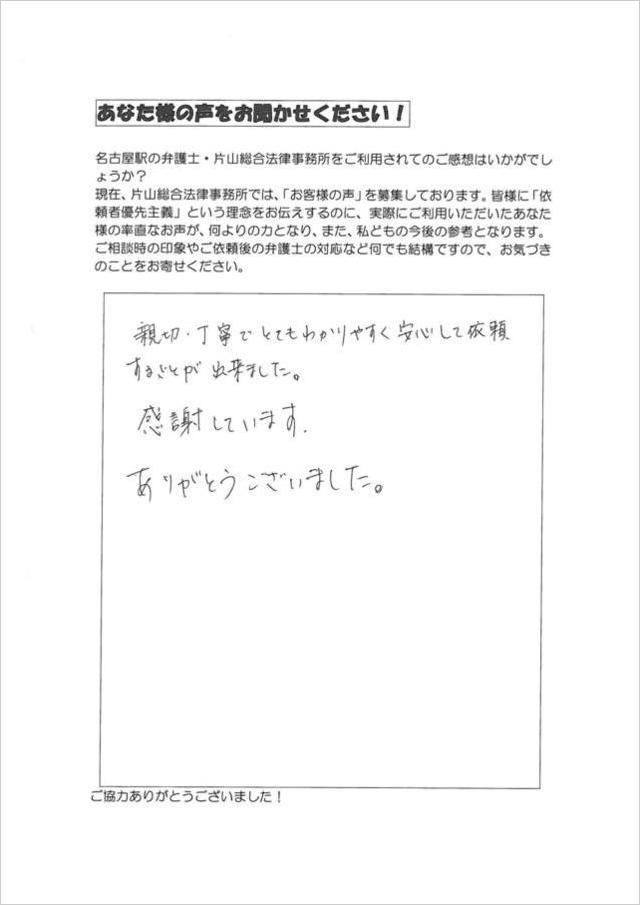 あなた様の声をお聞かせください！
名古屋駅の弁護士・片山総合法律事務所をご利用されてのご感想はいかがでし
ょうか？
現在、片山総合法律事務所では、「お客様の声」を募集しております。皆様に「依
頼者優先主義」という理念をお伝えするのに、実際にご利用いただいたあなた
様の率直なお声が、何よりの力となり、また、私どもの今後の参考となります。
ご相談時の印象やご依頼後の弁護士の対応など何でも結構ですので、お気づき
のことをお寄せください。
親切・丁寧でとてもわかりやすく安心して依頼
することが出来ました。
感謝しています.
ありがとうございました。
ご協力ありがとうございました！